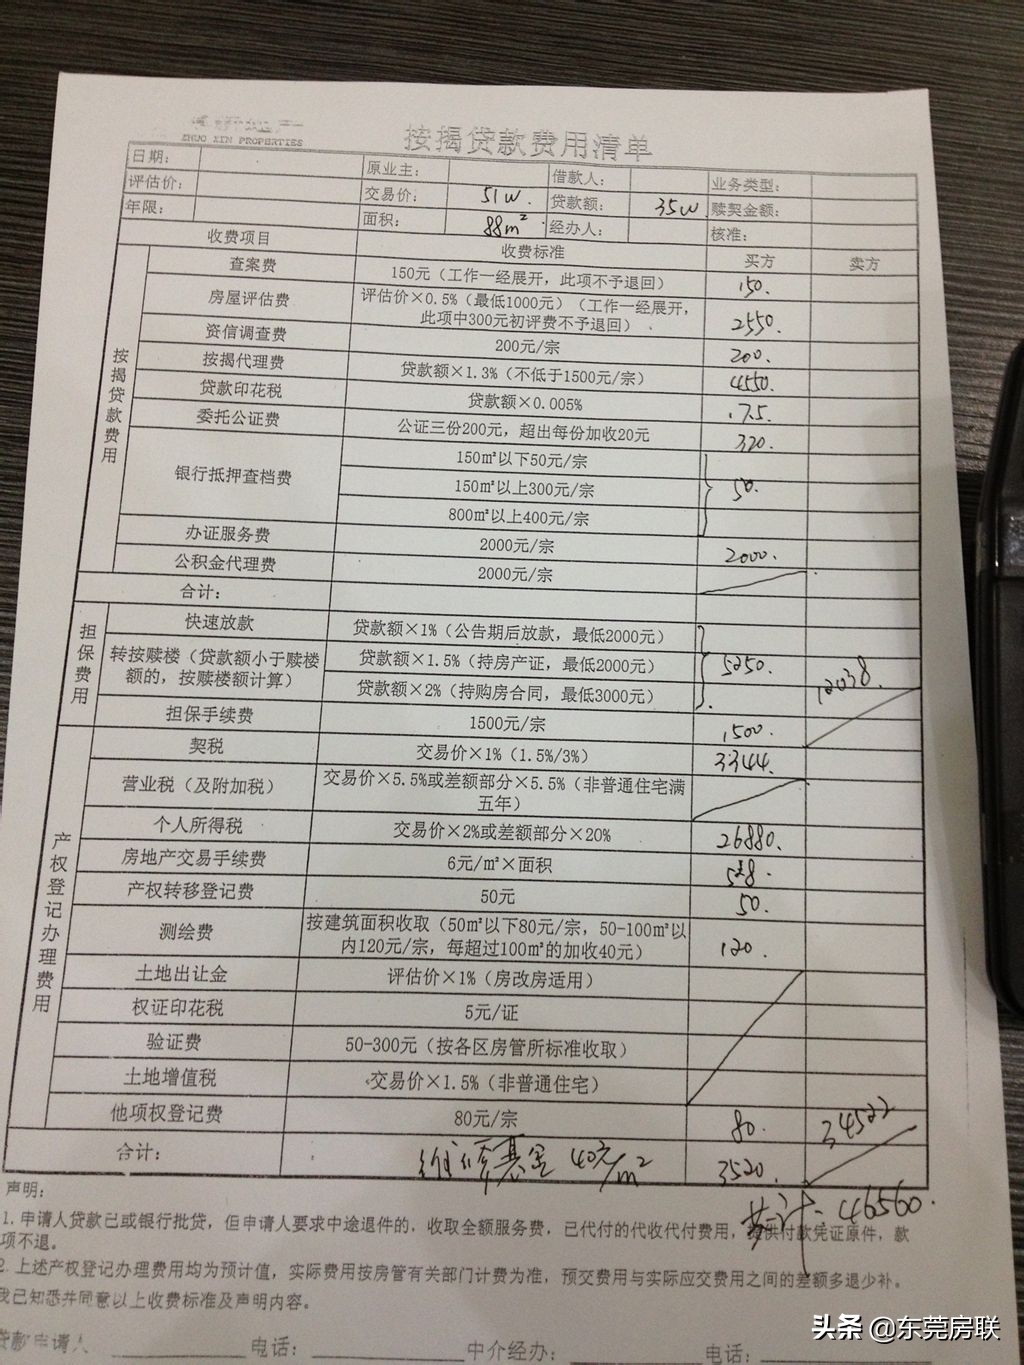 ZHUO XIN PROPERTIES
按揭贷款费用清单
日期： 原业主： 借款人： 业务类型：
评估价： 交易价： 51W. 贷款额： 35W. 赎契金额：
年限： 面积： 88m² 经办人： 核准：
收费项目 收费标准 买方 卖方
按揭贷款费用
查案费 150元（工作一经展开，此项不予退回） 150.
房屋评估费 评估价×0.5%（最低1000元）（工作一经展开，
此项中300元初评费不予退回）、 2550.
资信调查费 200元/宗 200.
按揭代理费 贷款额×1.3%（不低于1500元/宗） 4550.
贷款印花税 贷款额×0.005% 17.5.
委托公证费 公证三份200元，超出每份加收20元 320.
银行抵押查档费 150㎡以下50元/宗
150㎡以上300元/宗 50.
800㎡以上400元/宗
办证服务费 2000元/宗 2000.
公积金代理费 2000元/宗
合计：
担保费用
快速放款 贷款额×1%（公告期后放款，最低2000元）
转按赎楼（贷款额小于赎楼额的，按赎楼额计算） 贷款额×1.5%（持房产证，最低2000元） 5250.
贷款额×2%（持购房合同，最低3000元） 12038.
担保手续费 1500元/宗 1500.
产权登记办理费用
契税 交易价×1%（1.5%/3%） 3344.
营业税（及附加税） 交易价×5.5%或差额部分×5.5%（非普通住宅满
五年）
个人所得税 交易价×2%或差额部分×20% 26880.
房地产交易手续费 6元/m²×面积 528.
产权转移登记费 50元 50.
测绘费 按建筑面积收取（50㎡以下80元/宗，50-100㎡以
内120元/宗，每超过100㎡的加收40元） 120.
土地出让金 评估价×1%（房改房适用）
权证印花税 5元/证
验证费 50-300元（按各区房管所标准收取）
土地增值税 交易价×1.5%（非普通住宅）
他项权登记费 80元/宗 80. 34522
合计： 维修基金 40元/m² 3520.
共计：46560.
声明：
1. 申请人贷款已或银行批贷，但申请人要求中途退件的，收取全额服务费，已代付的代收代付费用，提供付款凭证原件，款
项不退。
2. 上述产权登记办理费用均为预计值，实际费用按房管有关部门计费为准，预交费用与实际应交费用之间的差额多退少补。
我已知悉并同意以上收费标准及声明内容。
贷款申请人 电话： 中介经办： 电话：
头条 @东莞房联